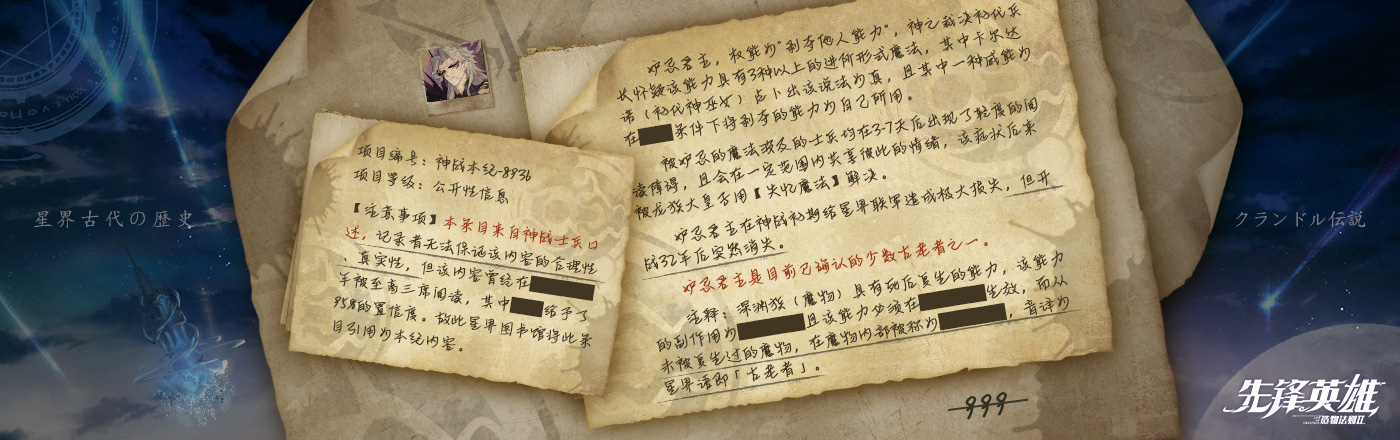 星界古代の歴史
项目编号：神战本纪-8936
项目等级：公开性信息
【注意事项】本条目来自神战士兵口
述，记录者无法保证该内容的合理性
、真实性，但该内容曾经在
年被至高三席阅读，其中 给予了
95%的置信度。故此星界图书馆将此条
目引用为本纪内容。
妒忌君主，权能为“剥夺他人能力”，神之裁决初代兵
长怀疑该能力具有3种以上的进阶形式魔法，其中卡尔达
诺（初代神巫女）占卜出该说法为真，且其中一种威能为
在 条件下将剥夺的能力为自己所用。
被妒忌的魔法波及的士兵均在3-7天后出现了轻度的阅
读障碍，且会在一定范围内共享彼此的情绪，该症状后来
被龙族大皇子用【失忆魔法】解决。
妒忌君主在神战初期给星界联军造成极大损失，但开
战32年后突然消失。
妒忌君主是目前已确认的少数古老者之一。
注释：深渊族（魔物）具有死后复生的能力，该能力
的副作用为 且该能力必须在 生放，而从
未被复生过的魔物，在魔物内部被称为 ，音译为
星界语即「古老者」。
999
クランドル伝説
先锋英雄
造物法则II